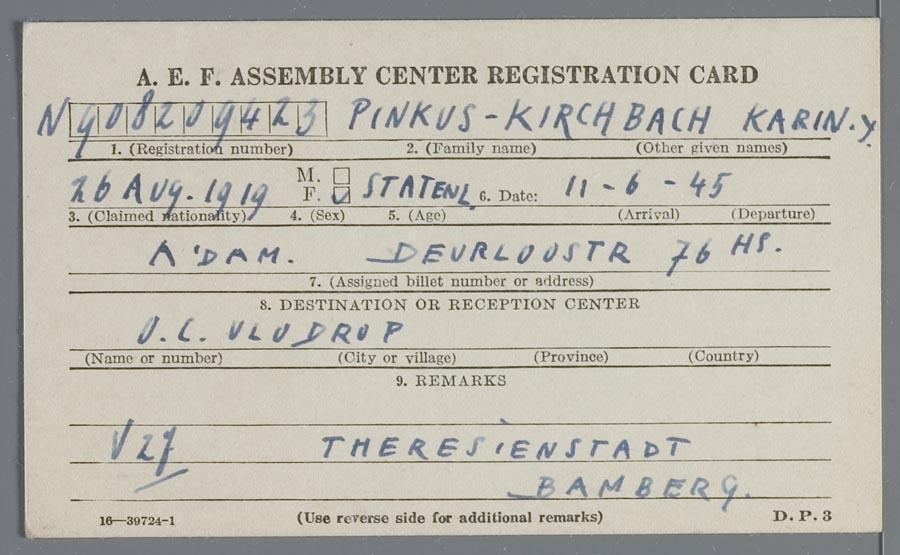 A. E. F. ASSEMBLY CENTER REGISTRATION CARD
N 908209423 PINKUS-KIRCHBACH KARIN. Y.
1. (Registration number) 2. (Family name) (Other given names)
26 AUG. 1919 M. F. STATENL. 6. Date: 11-6-45
3. (Claimed nationality) 4. (Sex) 5. (Age) (Arrival) (Departure)
A'DAM. DEURLOOSTR 76 HS.
7. (Assigned billet number or address)
8. DESTINATION OR RECEPTION CENTER
O.C. VLODROP
(Name or number) (City or village) (Province) (Country)
9. REMARKS
V27 THERESIENSTADT
BAMBERG.
16—39724-1 (Use reverse side for additional remarks) D. P. 3